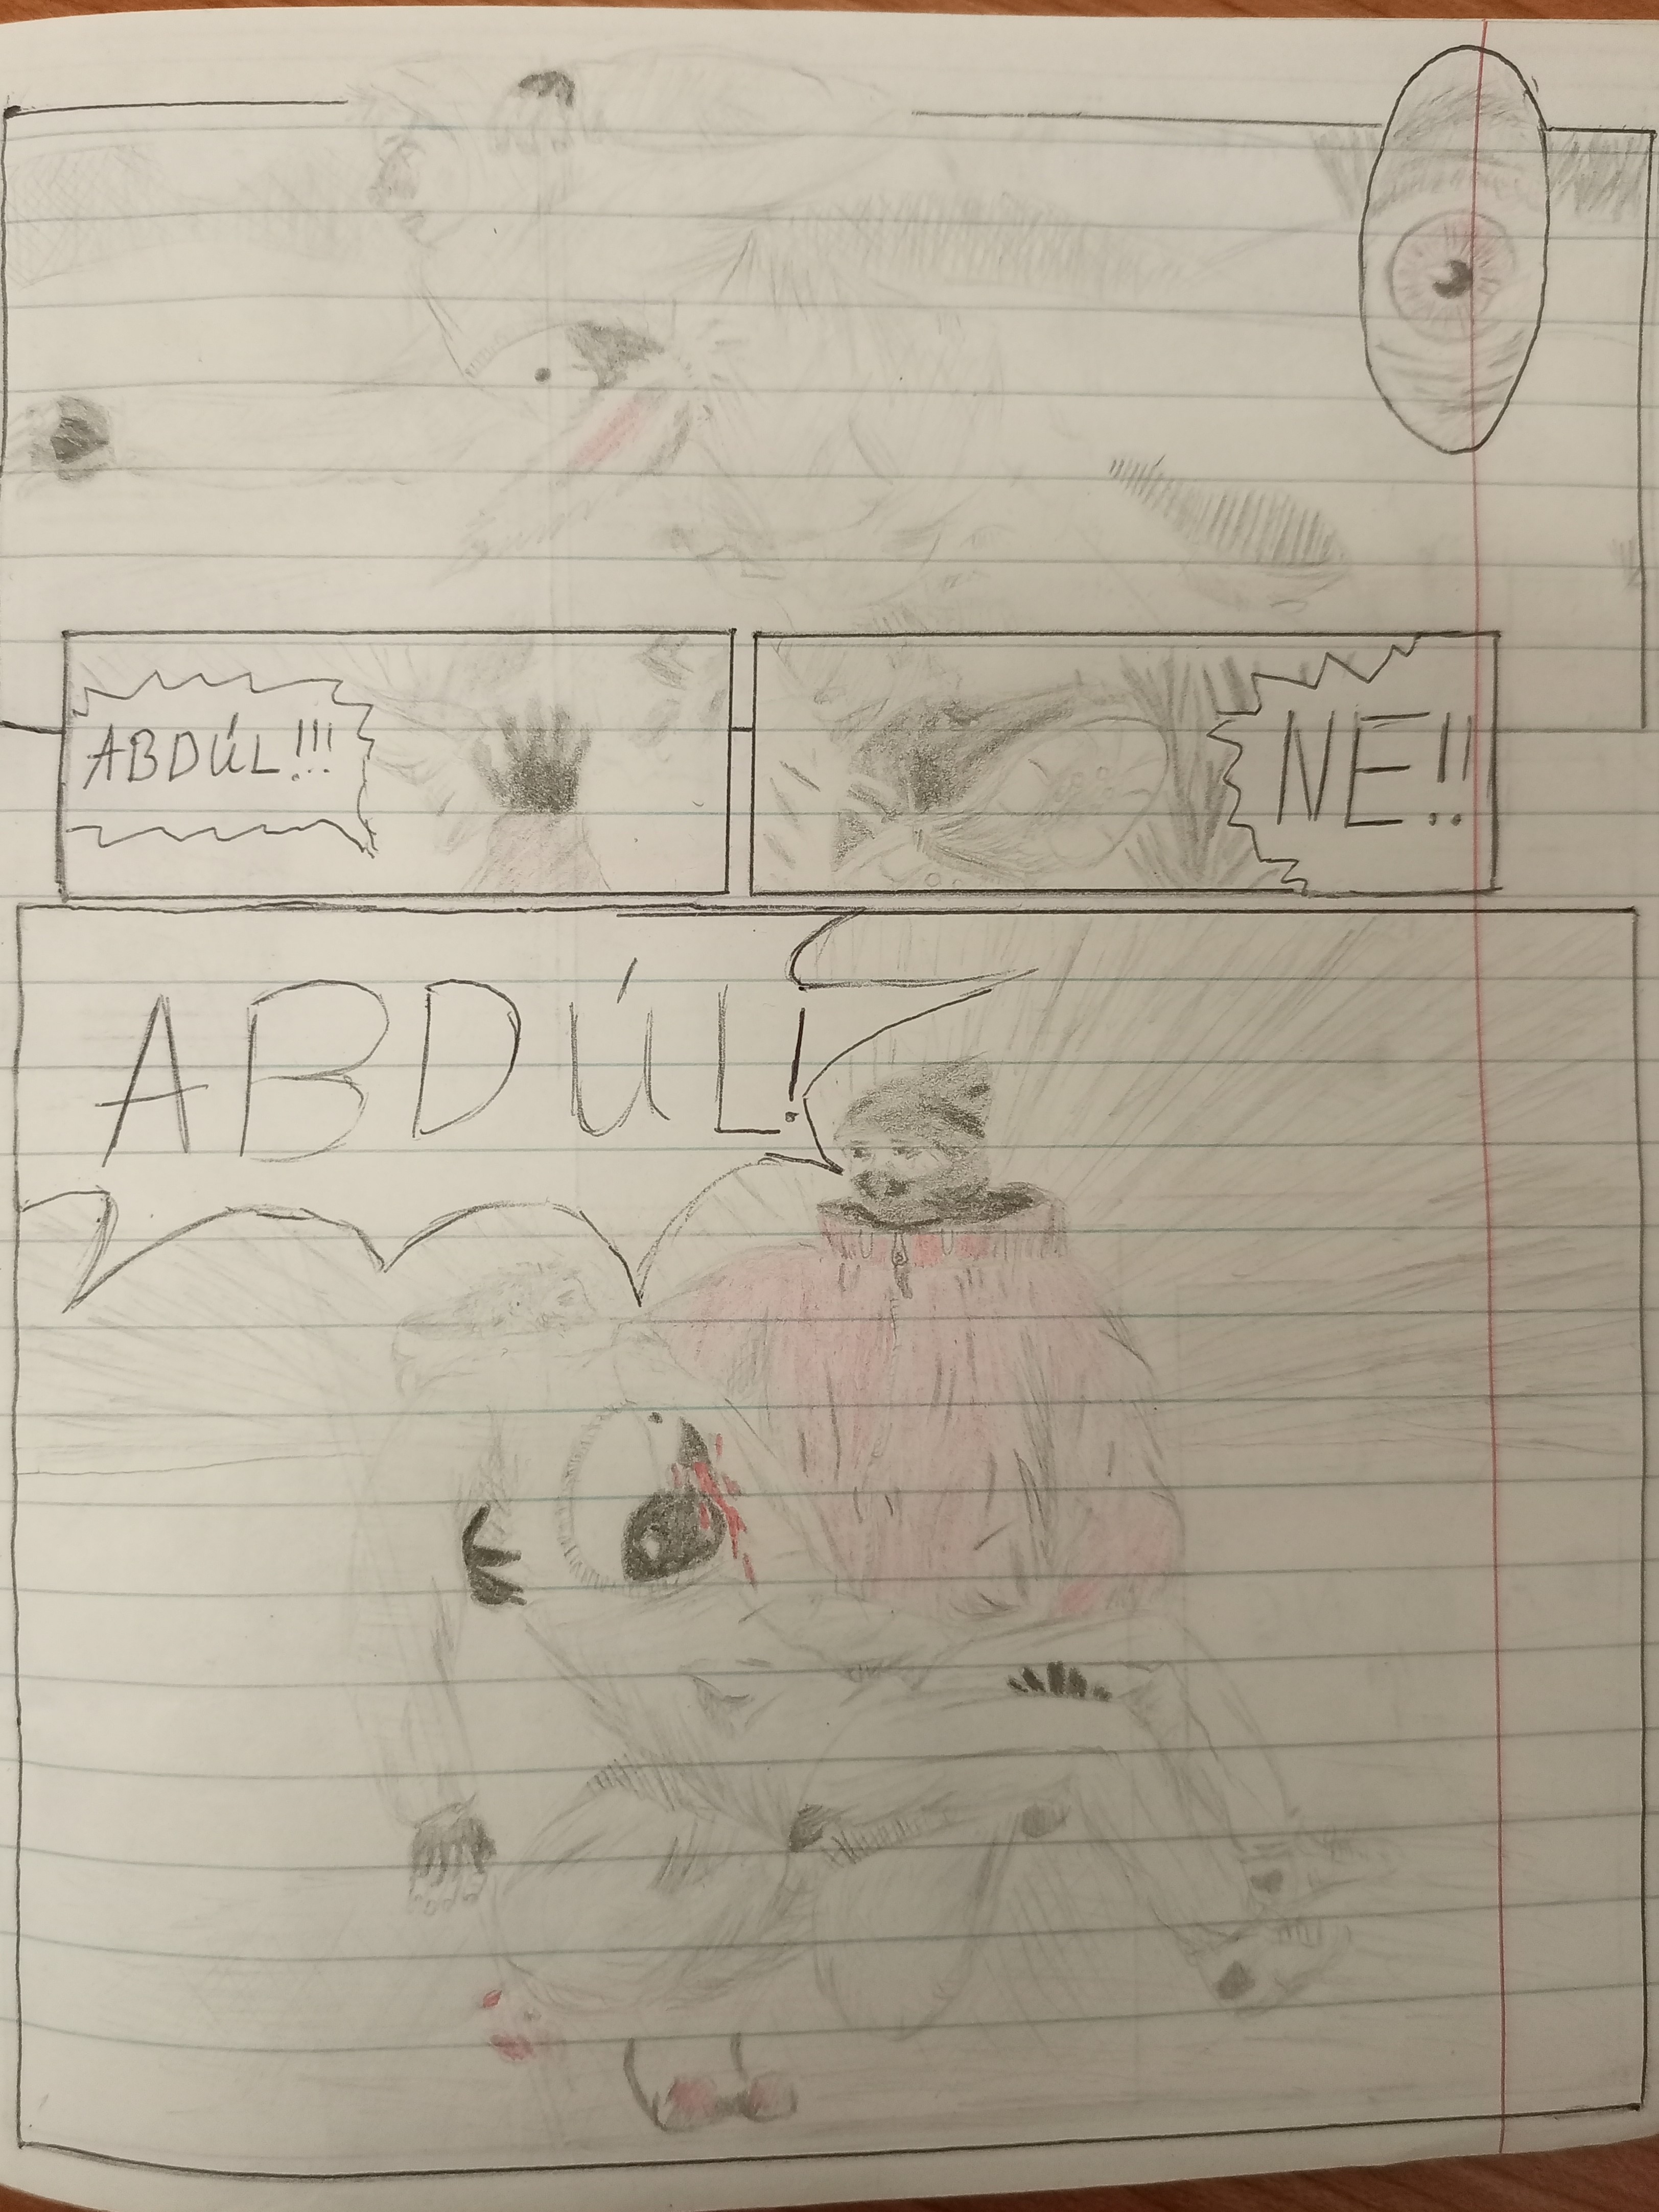 ABDÚL!!!
NE!!
ABDÚL!